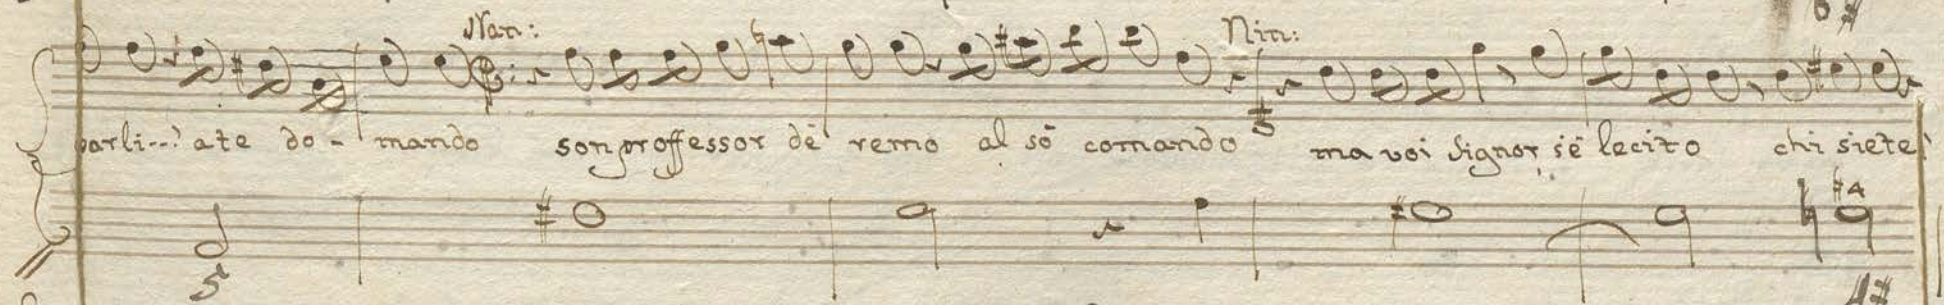 Nan: Nin: 6 #
parli--? ate do- mando son proffessor de remo al sò comando ma voi signor s'è lecito chi siete?
#4
5 4#